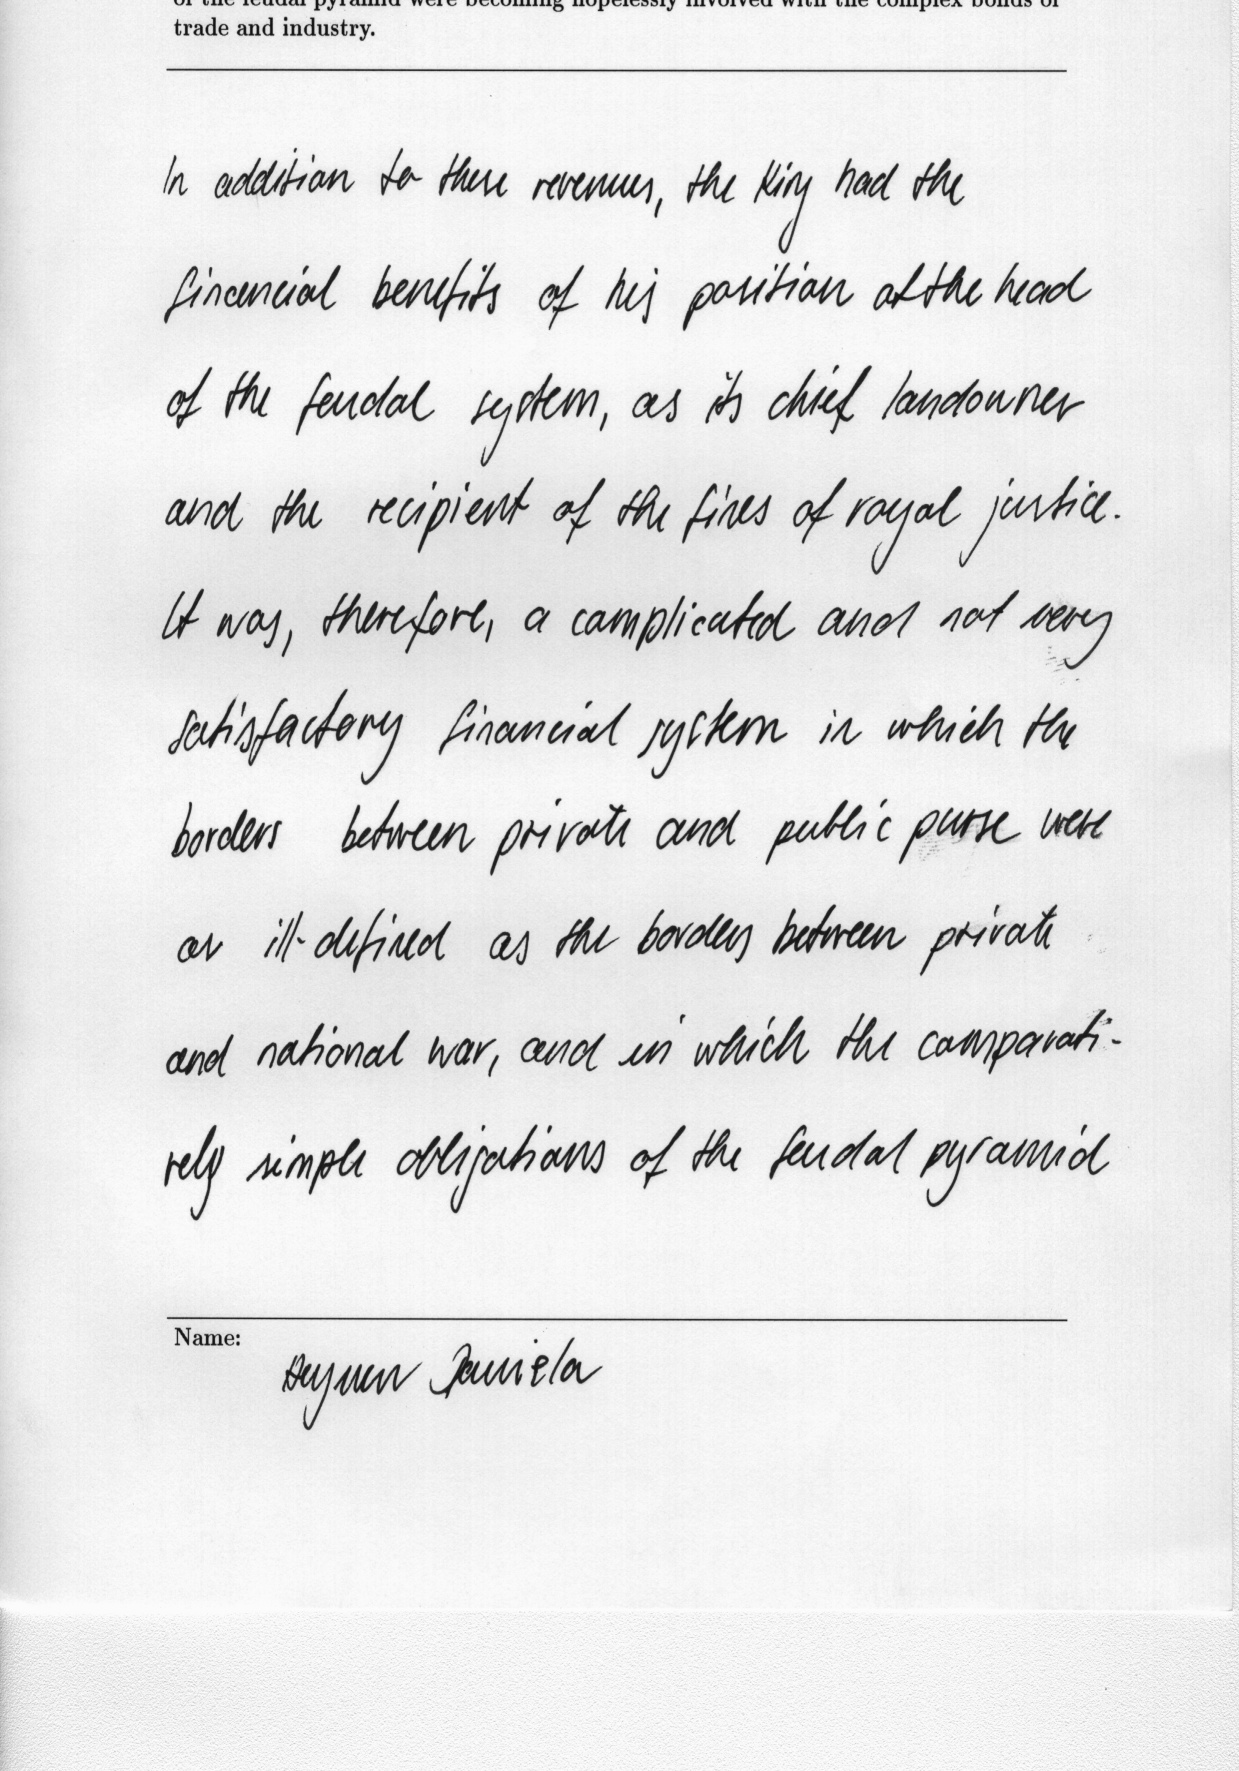 of the feudal pyramid were becoming hopelessly involved with the complex bonds of
trade and industry.
In addition to these revenues, the King had the
financial benefits of his position at the head
of the feudal system, as its chief landowner
and the recipient of the fines of royal justice.
It was, therefore, a complicated and not very
satisfactory financial system in which the
borders between private and public purse were
as ill-defined as the borders between private
and national war, and in which the comparati-
vely simple obligations of the feudal pyramid
Name:
Daniela